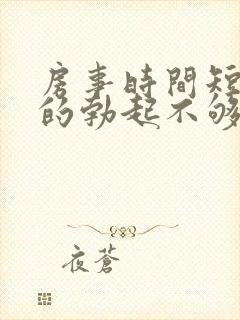 房事時間短
的勃起不够
夜蒼